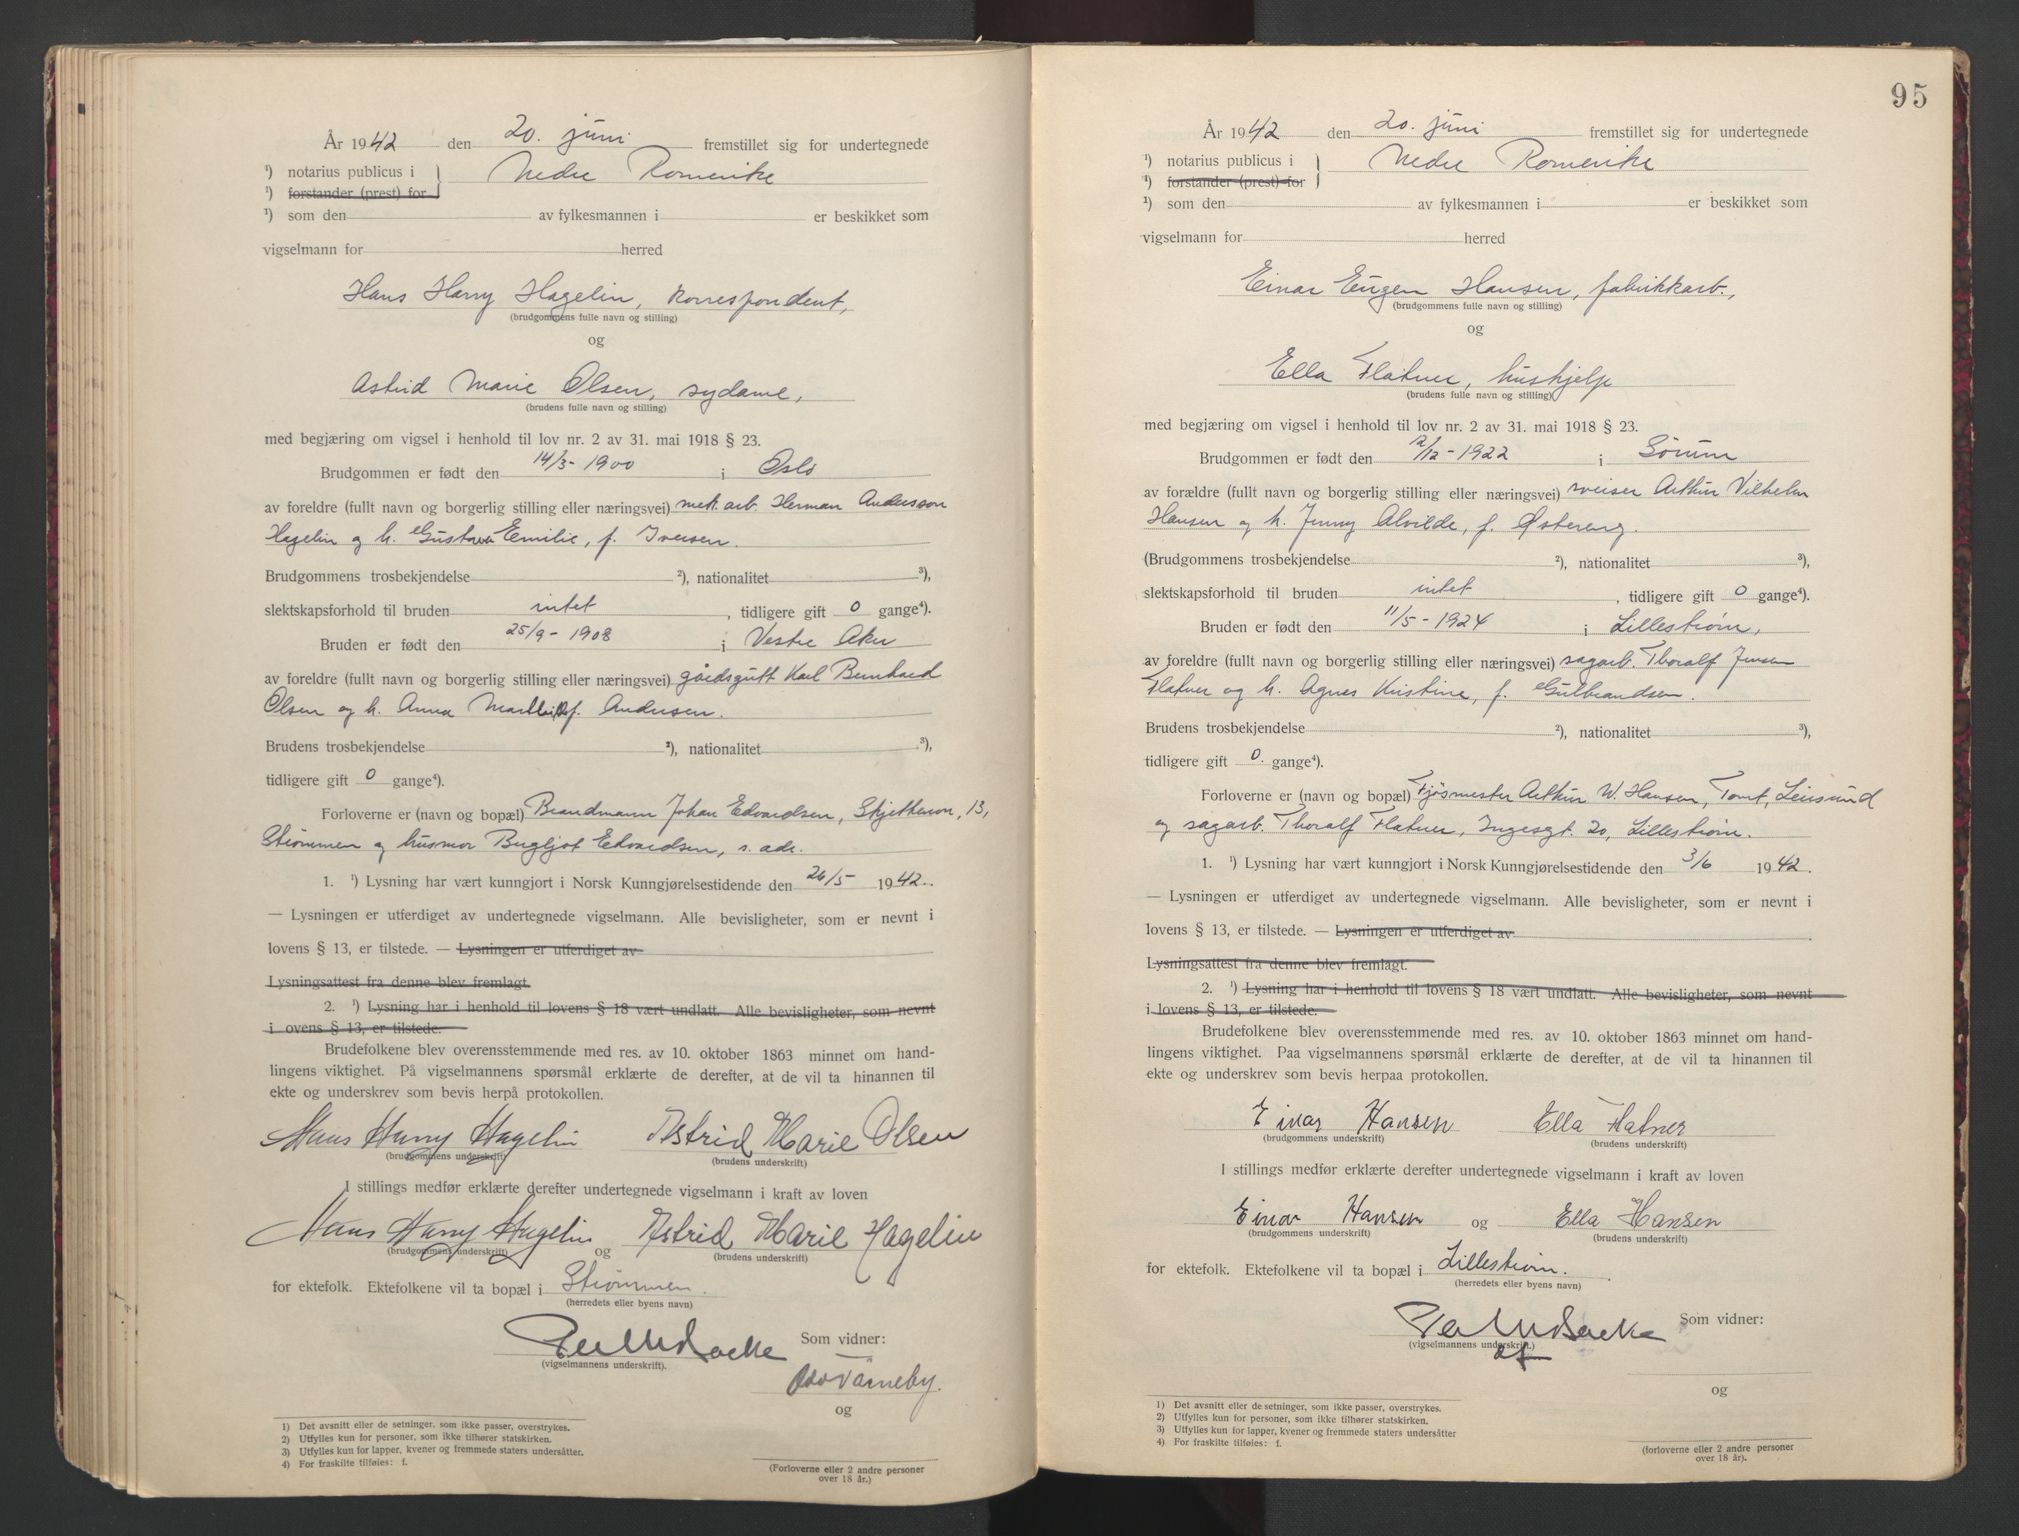 År 1942 den 20. juni fremstillet sig for undertegnede
¹) notarius publicus i } Nedre Romerike
¹) forstander (prest) for
¹) som den av fylkesmannen i er beskikket som
vigselmann for herred
Hans Harry Hagelin, korrespondent,
(brudgommens fulle navn og stilling)
og
Astrid Marie Olsen, sydame,
(brudens fulle navn og stilling)
med begjæring om vigsel i henhold til lov nr. 2 av 31. mai 1918 § 23.
Brudgommen er født den 14/3-1900 i Oslo
av foreldre (fullt navn og borgerlig stilling eller næringsvei) mek. arb. Herman Andersson
Hagelin og h. Gustava Emilie, f. Iversen.
Brudgommens trosbekjendelse ²), nationalitet ³),
slektskapsforhold til bruden intet, tidligere gift 0 gange⁴).
Bruden er født den 25/9-1908 i Vestre Aker
av foreldre (fullt navn og borgerlig stilling eller næringsvei) gårdsgutt Karl Bernhard
Olsen og h. Anna f. Andersen.
Brudens trosbekjendelse ²), nationalitet ³),
tidligere gift 0 gange⁴).
Forloverne er (navn og bopæl) Brandmann Johan Edvardsen, 13,
Strømmen og husmor Bergljot Edvardsen, s. adr.
1. ¹) Lysning har vært kunngjort i Norsk Kunngjørelsestidende den 26/5- 1942..
— Lysningen er utferdiget av undertegnede vigselmann. Alle bevisligheter, som er nevnt i
lovens § 13, er tilstede. — Lysningen er utferdiget av
Lysningsattest fra denne blev fremlagt.
2. ¹) Lysning har i henhold til lovens § 18 vært undlatt. Alle bevisligheter, som nevnt
i ovens § 13, er tilstede.
Brudefolkene blev overensstemmende med res. av 10. oktober 1863 minnet om hand-
lingens viktighet. På vigselmannens spørsmål erklærte de derefter, at de vil ta hinannen til
ekte og underskrev som bevis herpå protokollen.
Hans Harry Hagelin Astrid Marie Olsen
(brudgommens underskrift) (brudens underskrift)
I stillings medfør erklærte derefter undertegnede vigselmann i kraft av loven
Hans Harry Hagelin og Astrid Marie Hagelin
(brudgommens underskrift) (brudens underskrift)
for ektefolk. Ektefolkene vil ta bopæl i Strømmen.
(herredets eller byens navn)
Som vidner:
(vigselmannens underskrift).
og
1) Det avsnitt eller de setninger, som ikke passer, overstrykes.
2) Utfylles kun for personer, som ikke tilhører statskirken.
3) Utfylles kun for lapper, kvener og fremmede staters undersåtter.
4) For fraskilte tilføies: f.
(Forloverne eller 2 andre personer
over 18 år.)
95
År 1942 den 20. juni fremstillet sig for undertegnede
¹) notarius publicus i } Nedre Romerike
¹) forstander (prest) for
¹) som den av fylkesmannen i er beskikket som
vigselmann for herred
Einar Eugen Hansen, fabrikkarb.,
(brudgommens fulle navn og stilling)
og
Ella Flatner, hushjelp
(brudens fulle navn og stilling)
med begjæring om vigsel i henhold til lov nr. 2 av 31. mai 1918 § 23.
Brudgommen er født den /12-1922 i Sørum
av forældre (fullt navn og borgerlig stilling eller næringsvei) sveiser Arthur Vilhelm
Hansen og h. Jenny Alvilde, f. Østereng.
(Brudgommens trosbekjendelse ²), nationalitet ³),
slektskapsforhold til bruden intet, tidligere gift 0 gange⁴).
Bruden er født den 11/5-1924 i Lillestrøm,
av foreldre (fullt navn og borgerlig stilling eller næringsvei) sagarb. Thoralf Jensen
Flatner og h. Agnes Kristine, f. Gulbrandsen.
Brudens trosbekjendelse ²), nationalitet ³),
tidligere gift 0. gange⁴).
Forloverne er (navn og bopæl) Fjøsmester Arthur W. Hansen, Tomt, Leirsund
og sagarb. Thoralf Flatner, Ingesgt. 20, Lillestrøm.
1. ¹) Lysning har vært kunngjort i Norsk Kunngjørelsestidende den 3/6 1942.
— Lysningen er utferdiget av undertegnede vigselmann. Alle bevisligheter, som er nevnt i
lovens § 13, er tilstede. — Lysningen er utferdiget av
Lysningsattest fra denne blev fremlagt.
2. ¹) Lysning har i henhold til lovens § 18 vært undlatt. Alle bevisligheter, som nevnt
i lovens § 13, er tilstede.
Brudefolkene blev overensstemmende med res. av 10. oktober 1863 minnet om hand-
lingens viktighet. Paa vigselmannens spørsmål erklærte de derefter, at de vil ta hinannen til
ekte og underskrev som bevis herpaa protokollen.
Einar Hansen Ella Flatner
(brudgommens underskrift) (brudens underskrift)
I stillings medfør erklærte derefter undertegnede vigselmann i kraft av loven
Einar Hansen og Ella Hansen
(brudgommens underskrift) (brudens underskrift)
for ektefolk. Ektefolkene vil ta bopæl i Lillestrøm.
(herredets eller byens navn)
Som vidner:
(vigselmannens underskrift.)
og
1) Det avsnitt eller de setninger, som ikke passer, overstrykes.
2) Utfylles kun for personer, som ikke tilhører statskirken.
3) Utfylles kun for lapper, kvener og fremmede staters undersåtter
4) For fraskilte tilføies: f.
(forloverne eller 2 andre personer
over 18 år).